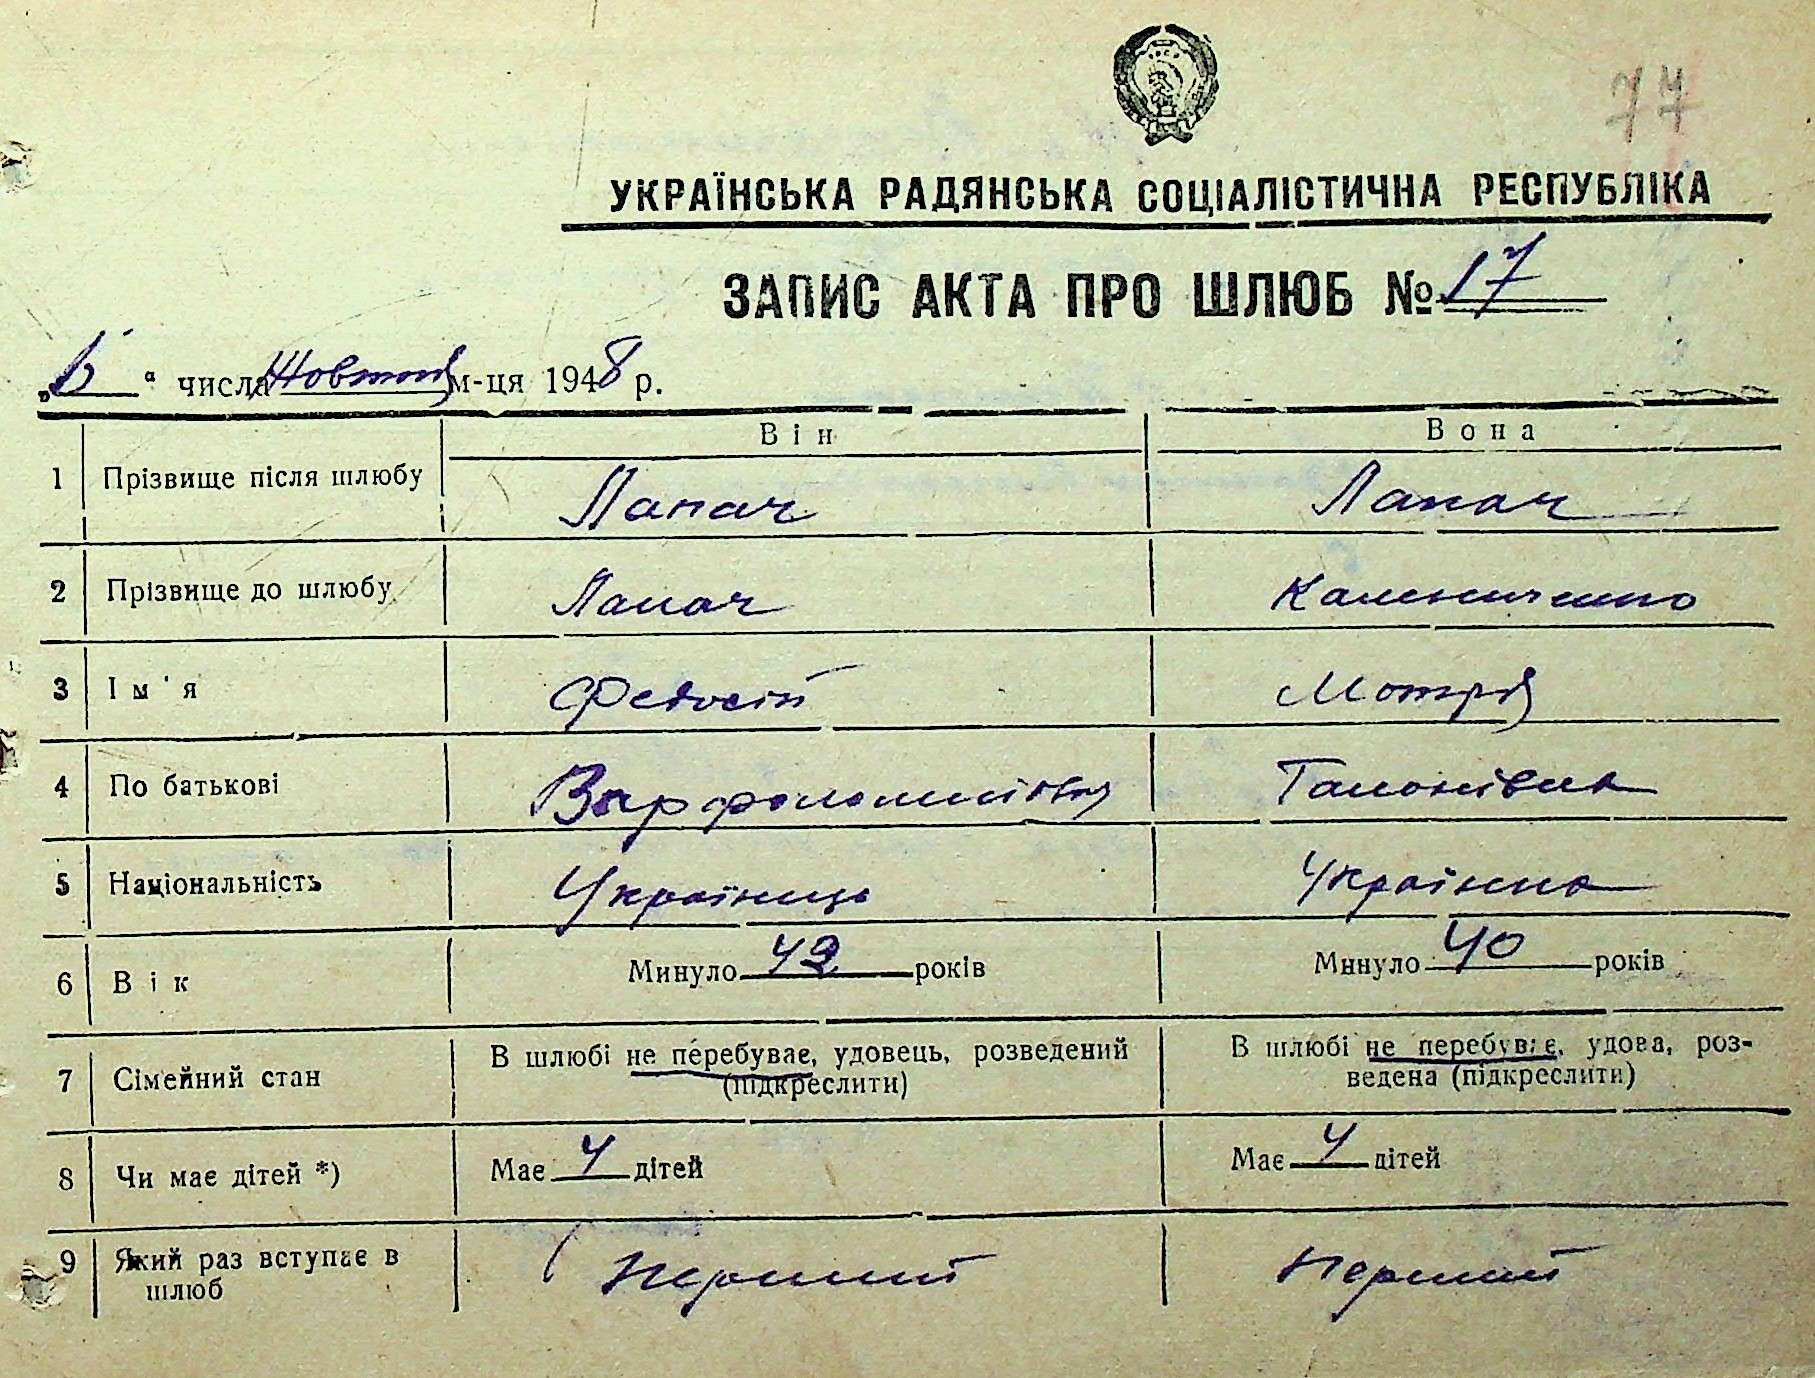 77
УКРАЇНСЬКА РАДЯНСЬКА СОЦІАЛІСТИЧНА РЕСПУБЛІКА
ЗАПИС АКТА ПРО ШЛЮБ № 17
„6“ числа Жовтня м-ця 1948 р.
Він Вона
1 Прізвище після шлюбу Лапач Лапач
2 Прізвище до шлюбу Лапач
3 Ім'я Федосій Мотря
4 По батькові
5 Національність Українець Українка
6 Вік Минуло 42 років Минуло 40 років
7 Сімейний стан В шлюбі не перебуває, удовець, розведений В шлюбі не перебуває, удова, роз-
(підкреслити) ведена (підкреслити)
8 Чи має дітей *) Має 4 дітей Має 4 дітей
9 Який раз вступає в Перший Перший
шлюб